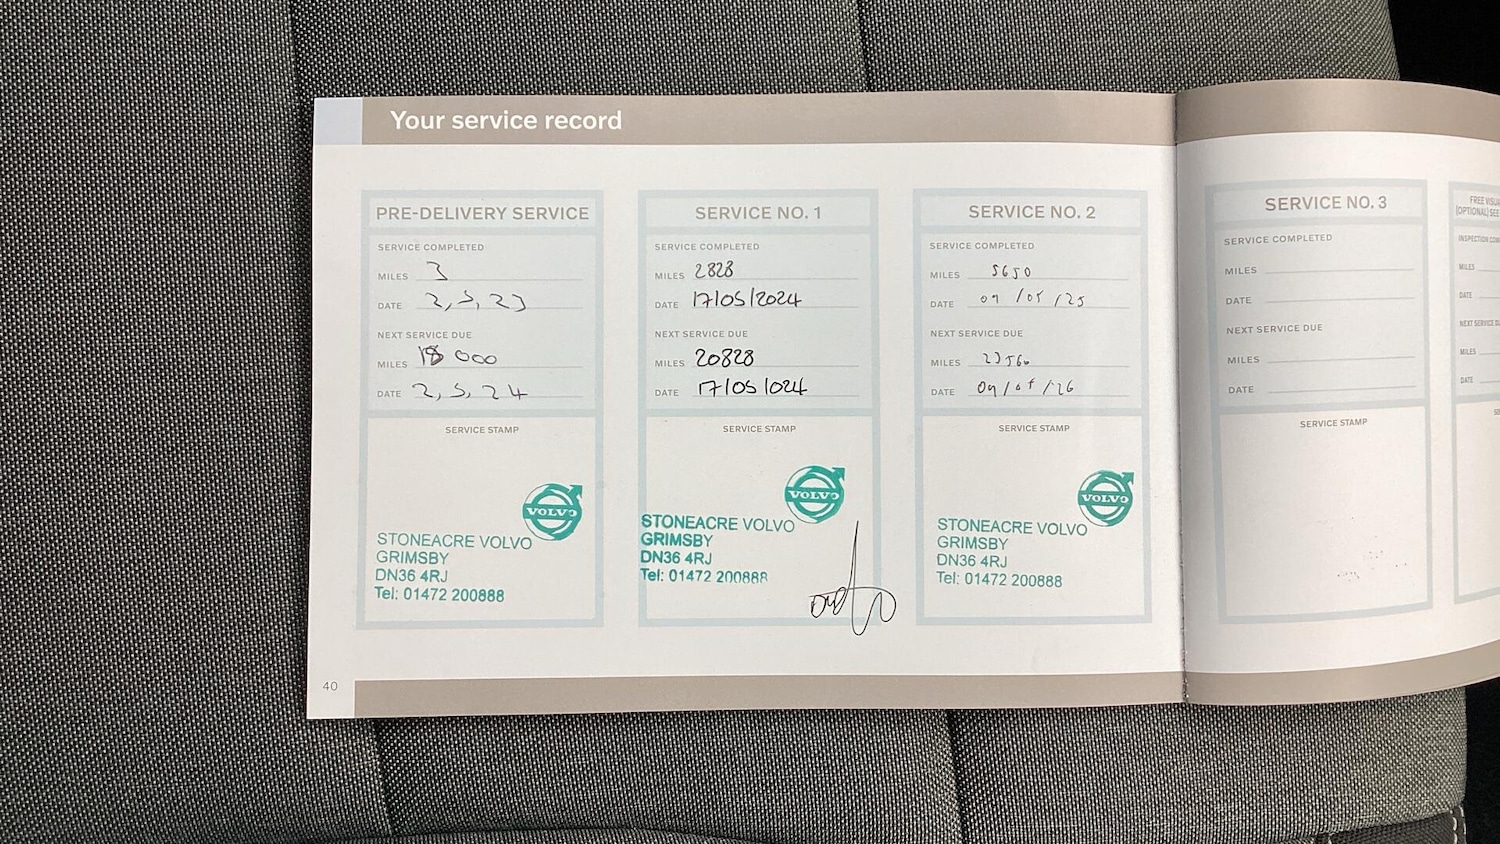 Your service record
PRE-DELIVERY SERVICE
SERVICE COMPLETED
MILES 3
DATE 2,5,23
NEXT SERVICE DUE
MILES 18000
DATE 2,5,24
SERVICE STAMP
VOLVO
STONEACRE VOLVO
GRIMSBY
DN36 4RJ
Tel: 01472 200888
SERVICE NO. 1
SERVICE COMPLETED
MILES 2828
DATE 17/05/2024
NEXT SERVICE DUE
MILES 20828
DATE 17/05/024
SERVICE STAMP
VOLVO
STONEACRE VOLVO
GRIMSBY
DN36 4RJ
Tel: 01472 200888
SERVICE NO. 2
SERVICE COMPLETED
MILES 5650
DATE 09/05/25
NEXT SERVICE DUE
MILES
DATE 09/05/26
SERVICE STAMP
VOLVO
STONEACRE VOLVO
GRIMSBY
DN36 4RJ
Tel: 01472 200888
SERVICE NO. 3
SERVICE COMPLETED
MILES
DATE
NEXT SERVICE DUE
MILES
DATE
SERVICE STAMP
FREE
(OPTIONAL) SEE
INSPECTION
MILES
DATE
NEXT SERVICE
MILES
DATE
40